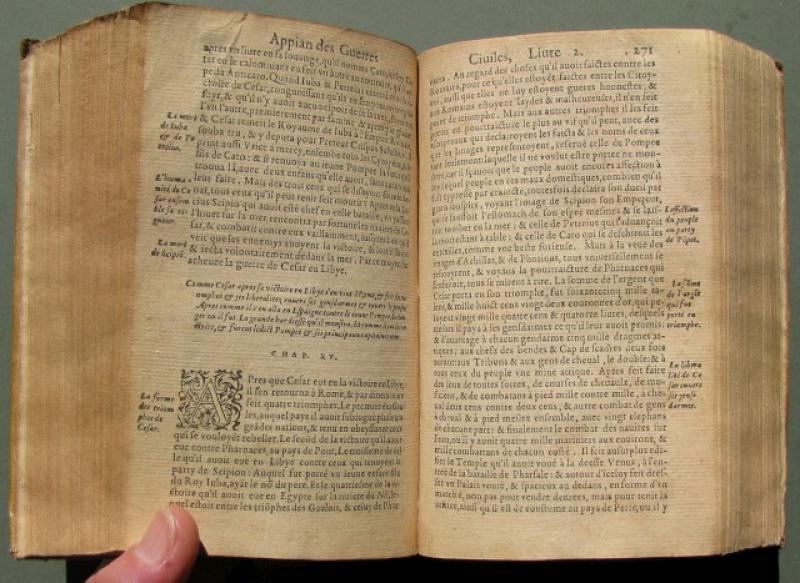 Appian des Guerres
apres vn liure en sa louange, qu'il nomma Cato,
tar en le calomniant en feit vn autre au contraire, qu'il
pella Anticato. Quand Iuba & Petreius
ctoire de Cesar, congnoissant qu'ilz ne
fuyr, & qu'il n'y auoit aucun espoir de
l'vn l'autre, premierement par
& Cesar remeit le Royaume de Iuba à l'Empire Romain
souba tru, & y deputa pour Preteur Crispus Saluste. Il
print aussi Vtice à mercy, ensemble tous les Cytoyens, & le
filz de Cato: & si renuoya au ieune Pompee sa
trouua là, auec deux enfans qu'elle auoit, sans
leur faire. Mais des trois cens qui se
nat, tous ceux qu'il peut tenir feit mourir: Apres
cius Scipio qui auoit esté chef en celle bataille, en
l'huuer sur la mer, rencontra par fortune les nauires de
sar, & combatit contre eux vaillamment, iusques à ce qu'il
veit que les ennemys auoyent la victoire, & lors se tua
& iecta volontairement dedans la mer. Par ce moyen
acheuee la guerre de Cesar en Libye.
La mort
de Iuba
& de Pe-
treius.
L'huma-
nité de Ce
sar ensem
ble sa vi
gueur.
La mort
de Scipiō.
Comme Cesar apres sa victoire en Libye s'en vint à Rome, & feit
omphes & ses liberalitez, enuers ses gensdarmes & enuers le peuple
Apres comme il s'en alla en Espaigne contre le ieune Pompee: du dan
ger ou il fut. La grande hardiesse qu'il monstra. Et comme il eut la vi
ctoire, & furent ledict Pompee & ses principaux capitaines
CHAP. XV.
La forme
des trium
phes de
Cesar.
APres que Cesar eut eu la victoire en Libye,
il s'en retourna à Rome, & par dions
feit quatre triomphes. Le premier
les, auquel pays il auoit subiugué plusieurs
grādes nations, & tenu en obeyssance ceux
qui se vouloyēt rebeller. Le secōd de la victoire qu'il auoit
eue contre Pharnaces, au pays de Pont. Le troisesme de cel
le qu'il auoit eue en Libye contre ceux qui tenoyent la
party de Scipion: Auquel fut porté vn ieune enfant filz
du Roy Iuba, ayāt le nō du pere. Et le quatriesme de la vi-
ctoire qu'il auoit eue en Egypte sur la riuiere du Nil, le-
quel estoit entre les triōphes des Gaulois, & celuy de Phar
Ciuiles, Liure 2. 271
naces. Au regard des choses qu'il auoit faictes contre les
Romains, pour ce qu'elles estoyēt faictes entre les Citoy-
ens, aussi que elles ne luy estoyent gueres honnestes; &
aux Romains estoyent laydes & malheureuses, il n'en feit
point de triomphe. Mais aux autres triomphes il les feit
porter en pourtraicture le plus au vif qu'il peut, auec des
escripteaux qui declairoyent les faicts & les noms de ceux
que les Images representoyent, reserué celle de Pompee
tant seulement: laquelle il ne voulut estre portee ne mon-
stree, car il sçauoit que le peuple auoit encores affection à
luy, lequel peuple en ces maux domestiques, combien qu'il
fust oppressé par craincte, toutesfois declaira son dueil par
souspirs, voyant l'image de Scipion son Empereur,
qui se fausoit l'estomach de son espee mesmes & se lais-
soit tomber en la mer: & celle de Petreius qui s'aduançoit
la mort estant à table: & celle de Cato qui se deschiroit les
entrailles, comme vne beste furieuse. Mais à la veüe des
images d'Achillas, & de Photinus, tous vniuersellement se
resiouyrent, & voyans la pourtraicture de Pharnaces qui
s'enfuyoit, tous se mirent à rire. La somme de l'argent que
Cesar porta en son triumphe, fut soixante cinq mille ta-
lens, & mille huict cens vingt deux couronnes d'or, qui pe-
soyent vingt mille quatre cens & quatorze liures, desquels
talens il paya à ses gensdarmes ce qu'il leur auoit promis:
& d'auantage à chacun gendarme cinq mille dragmes at-
tiques: aux chefz des bendes & Cap de scadres deux fois
autant: aux Tribuns & aux gens de cheual, le double: & à
tous ceux du peuple vne mine attique. Apres feit faire
des ieux de toutes sortes, de courses de cheuaulx, de mu-
siciens, & de combatans à pied mille contre mille, à che-
ual deux cens contre deux cens, & autre combat de gens
à cheual & à pied meslez ensemble, auec vingt elephans
de chacune part: & finalement le combat des nauires sur
l'eau, où il y auoit quatre mille mariniers aux enuirons, &
mille combattans de chacun costé. Il feit au surplus edi-
fier le Temple qu'il auoit voué à la deesse Venus, à l'en-
tree de la bataille de Pharsale: & autour d'iceluy feit dres-
ser vn Palais vouté, & spacieux au dedans, en forme d'vn
marché, non pas pour vendre denrees, mais pour tenir la
iustice, ainsi qu'il est de coustume au pays de Perse, ou il y
L'affection
du peuple
au party
de Pōpee.
La sōme
de l'argēt
qui fut
porté au
triumphe.
La libera
lité de Ce
sar enuers
ses gens-
darmes.